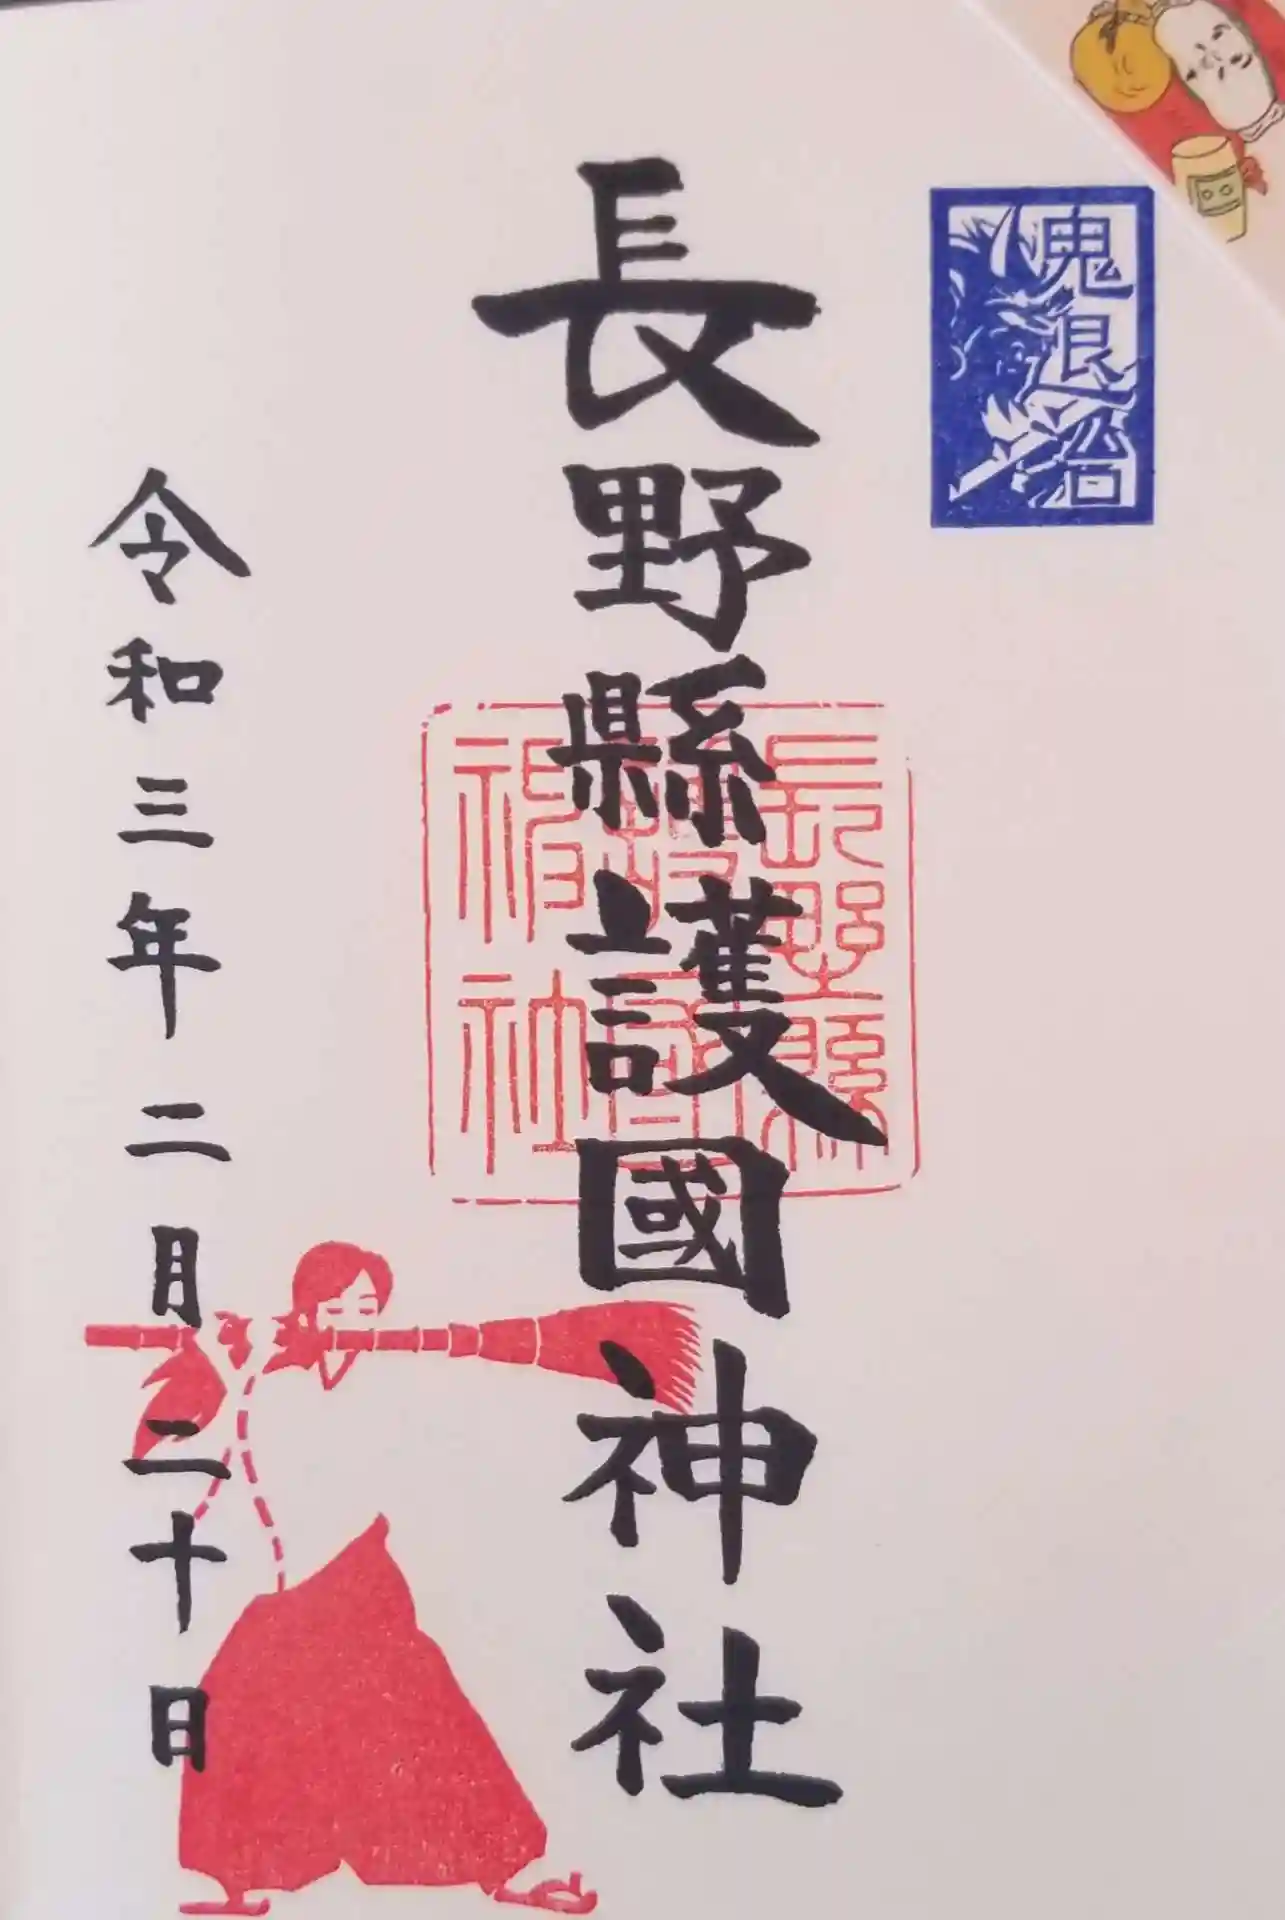 鬼退治
長野縣護國神社
長野縣
護國
神社
令和三年二月二十日